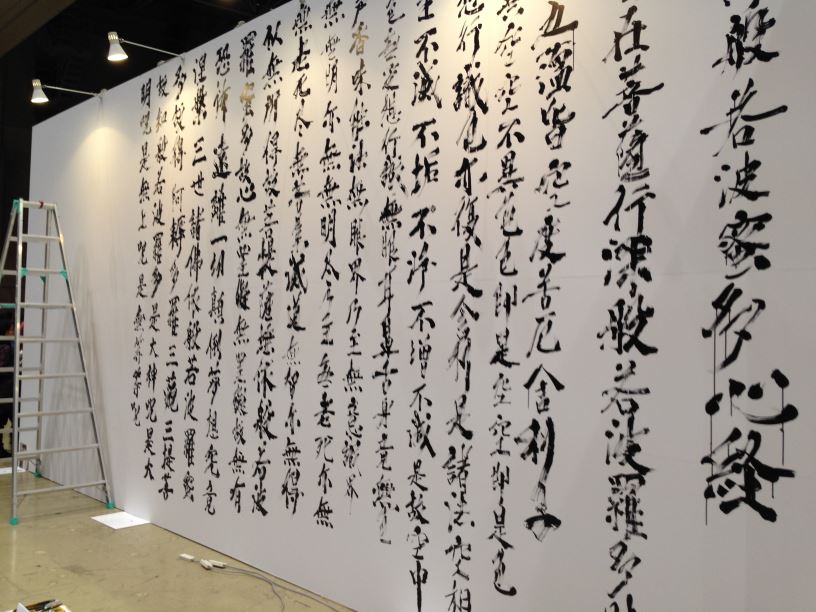 般若波蜜多心経
在菩薩行深般若波羅多
五蘊皆空度苦厄舎利子
異空空不異色色即是空空即是色
想行識色亦復是舎利是諸法空相
生不滅不垢不浄不増不減是故空中
色無受想行識無眼耳鼻舌身意無色
香味触法無眼界乃至無意識界
無無明亦無無明尽乃至無老死亦無
無老死尽無苦集滅道無智亦無得
以無所得故菩提薩埵依般若波
羅蜜多故心無罣礙無罣礙故無有
恐怖遠離一切顛倒夢想究竟
涅槃三世諸佛依般若波羅蜜
多故得阿耨多羅三藐三提菩
故知般若波羅多是大神呪是大
明呪是無上呪是無等等呪